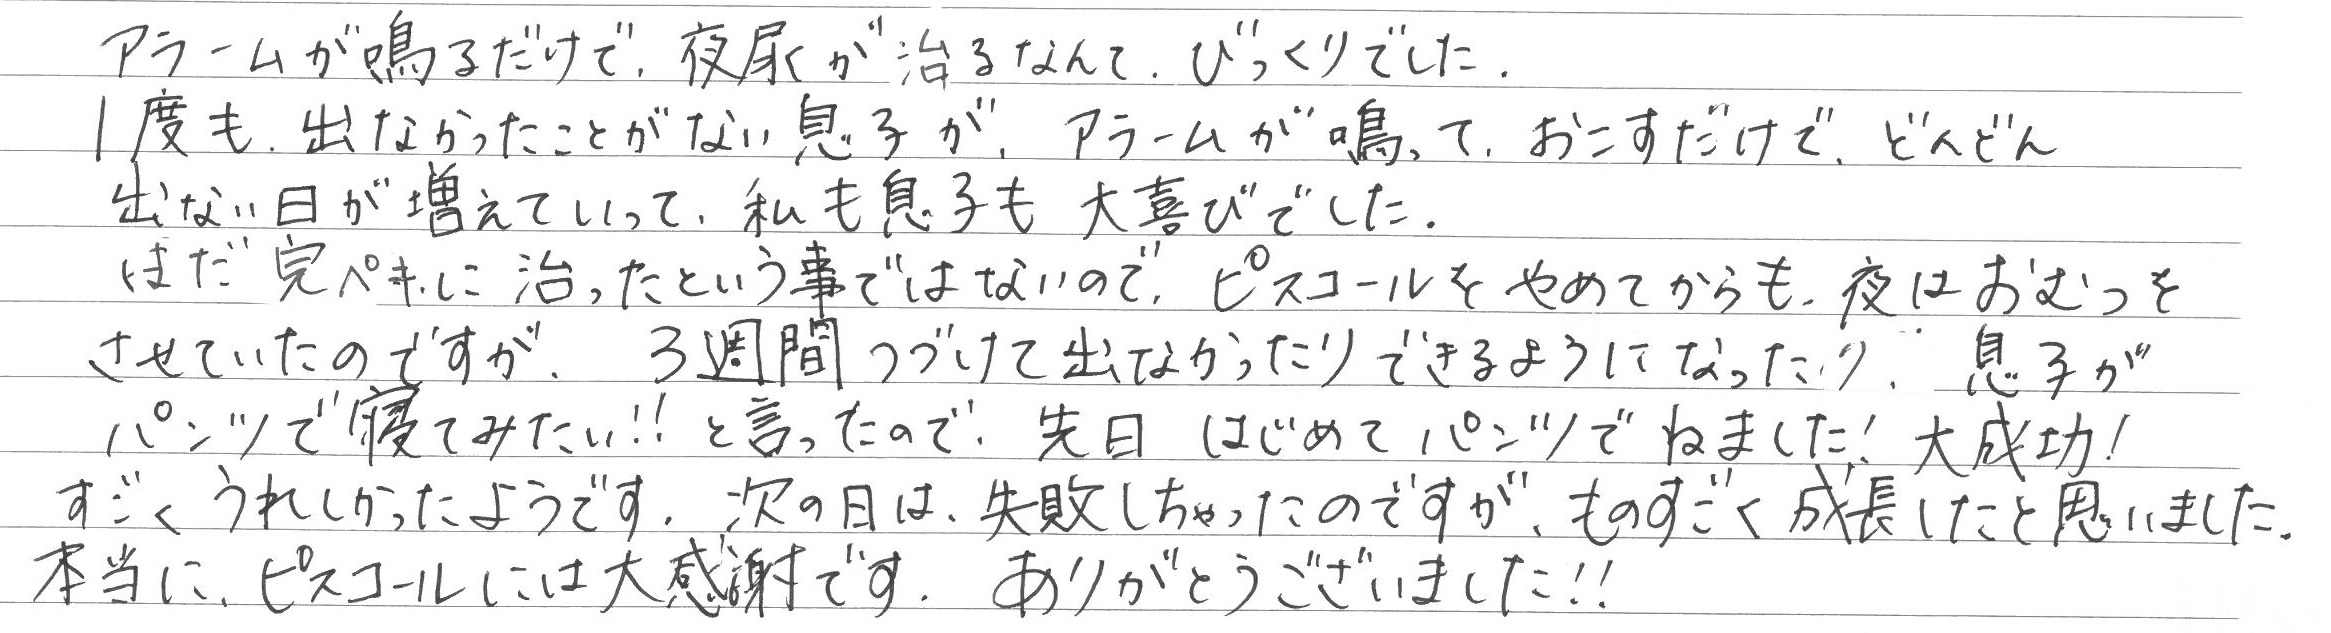 アラームが鳴るだけで、夜尿が治るなんて、びっくりでした。
1度も、出なかったことがない息子が、アラームが鳴って、おこすだけで、どんどん
出ない日が増えていって、私も息子も大喜びでした。
まだ完ペキに治ったという事ではないので、ピスコールをやめてからも、夜はおむつを
させていたのですが、3週間つづけて出なかったりできるようになったり、息子が
パンツで寝てみたい!!と言ったので、先日はじめてパンツでねました!大成功!
すごくうれしかったようです。次の日は、失敗しちゃったのですが、ものすごく成長したと思いました。
本当に、ピスコールには大感謝です。ありがとうございました!!